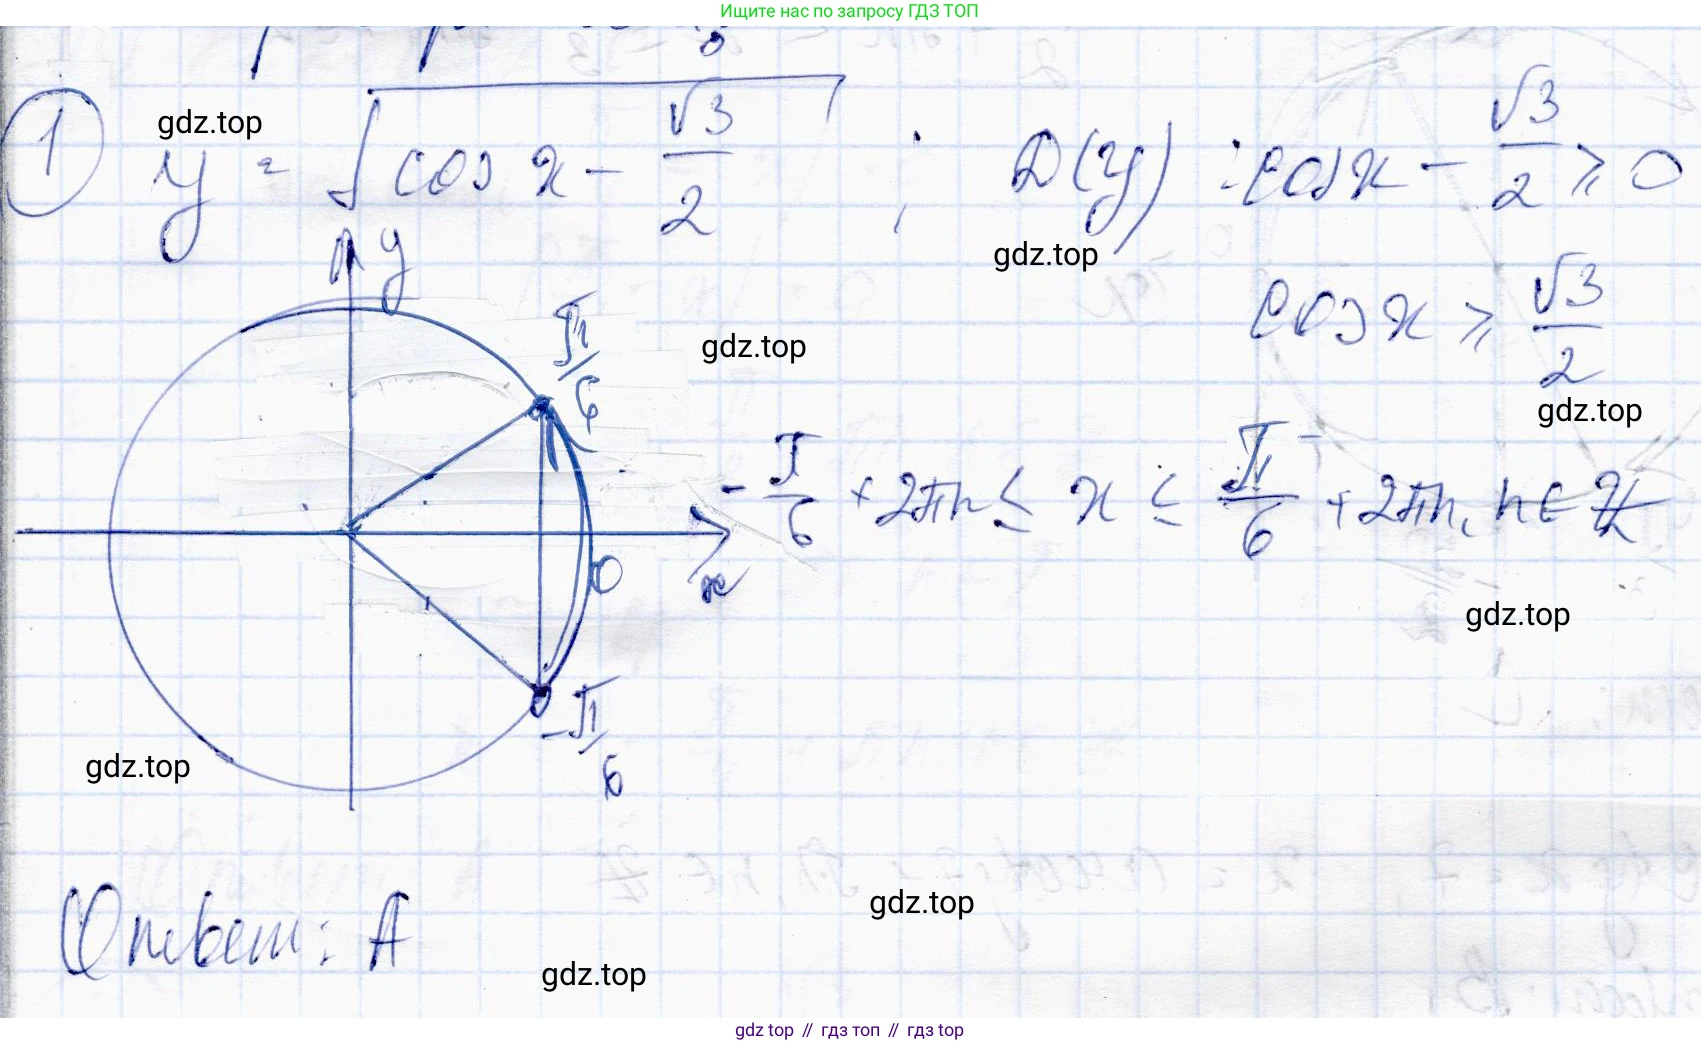 Ищите нас по запросу ГДЗ ТОП
1 y = √(cos x - √3/2) ; D(y) : cos x - √3/2 ⩾ 0
gdz.top
gdz.top
y
cos x ⩾ √3/2
π/6
gdz.top
gdz.top
-π/6 + 2πn ≤ x ≤ π/6 + 2πn, n ∈ Z
0
x
gdz.top
-π/6
gdz.top
gdz.top
Ответ: А
gdz.top
gdz top // гдз топ // гдз top